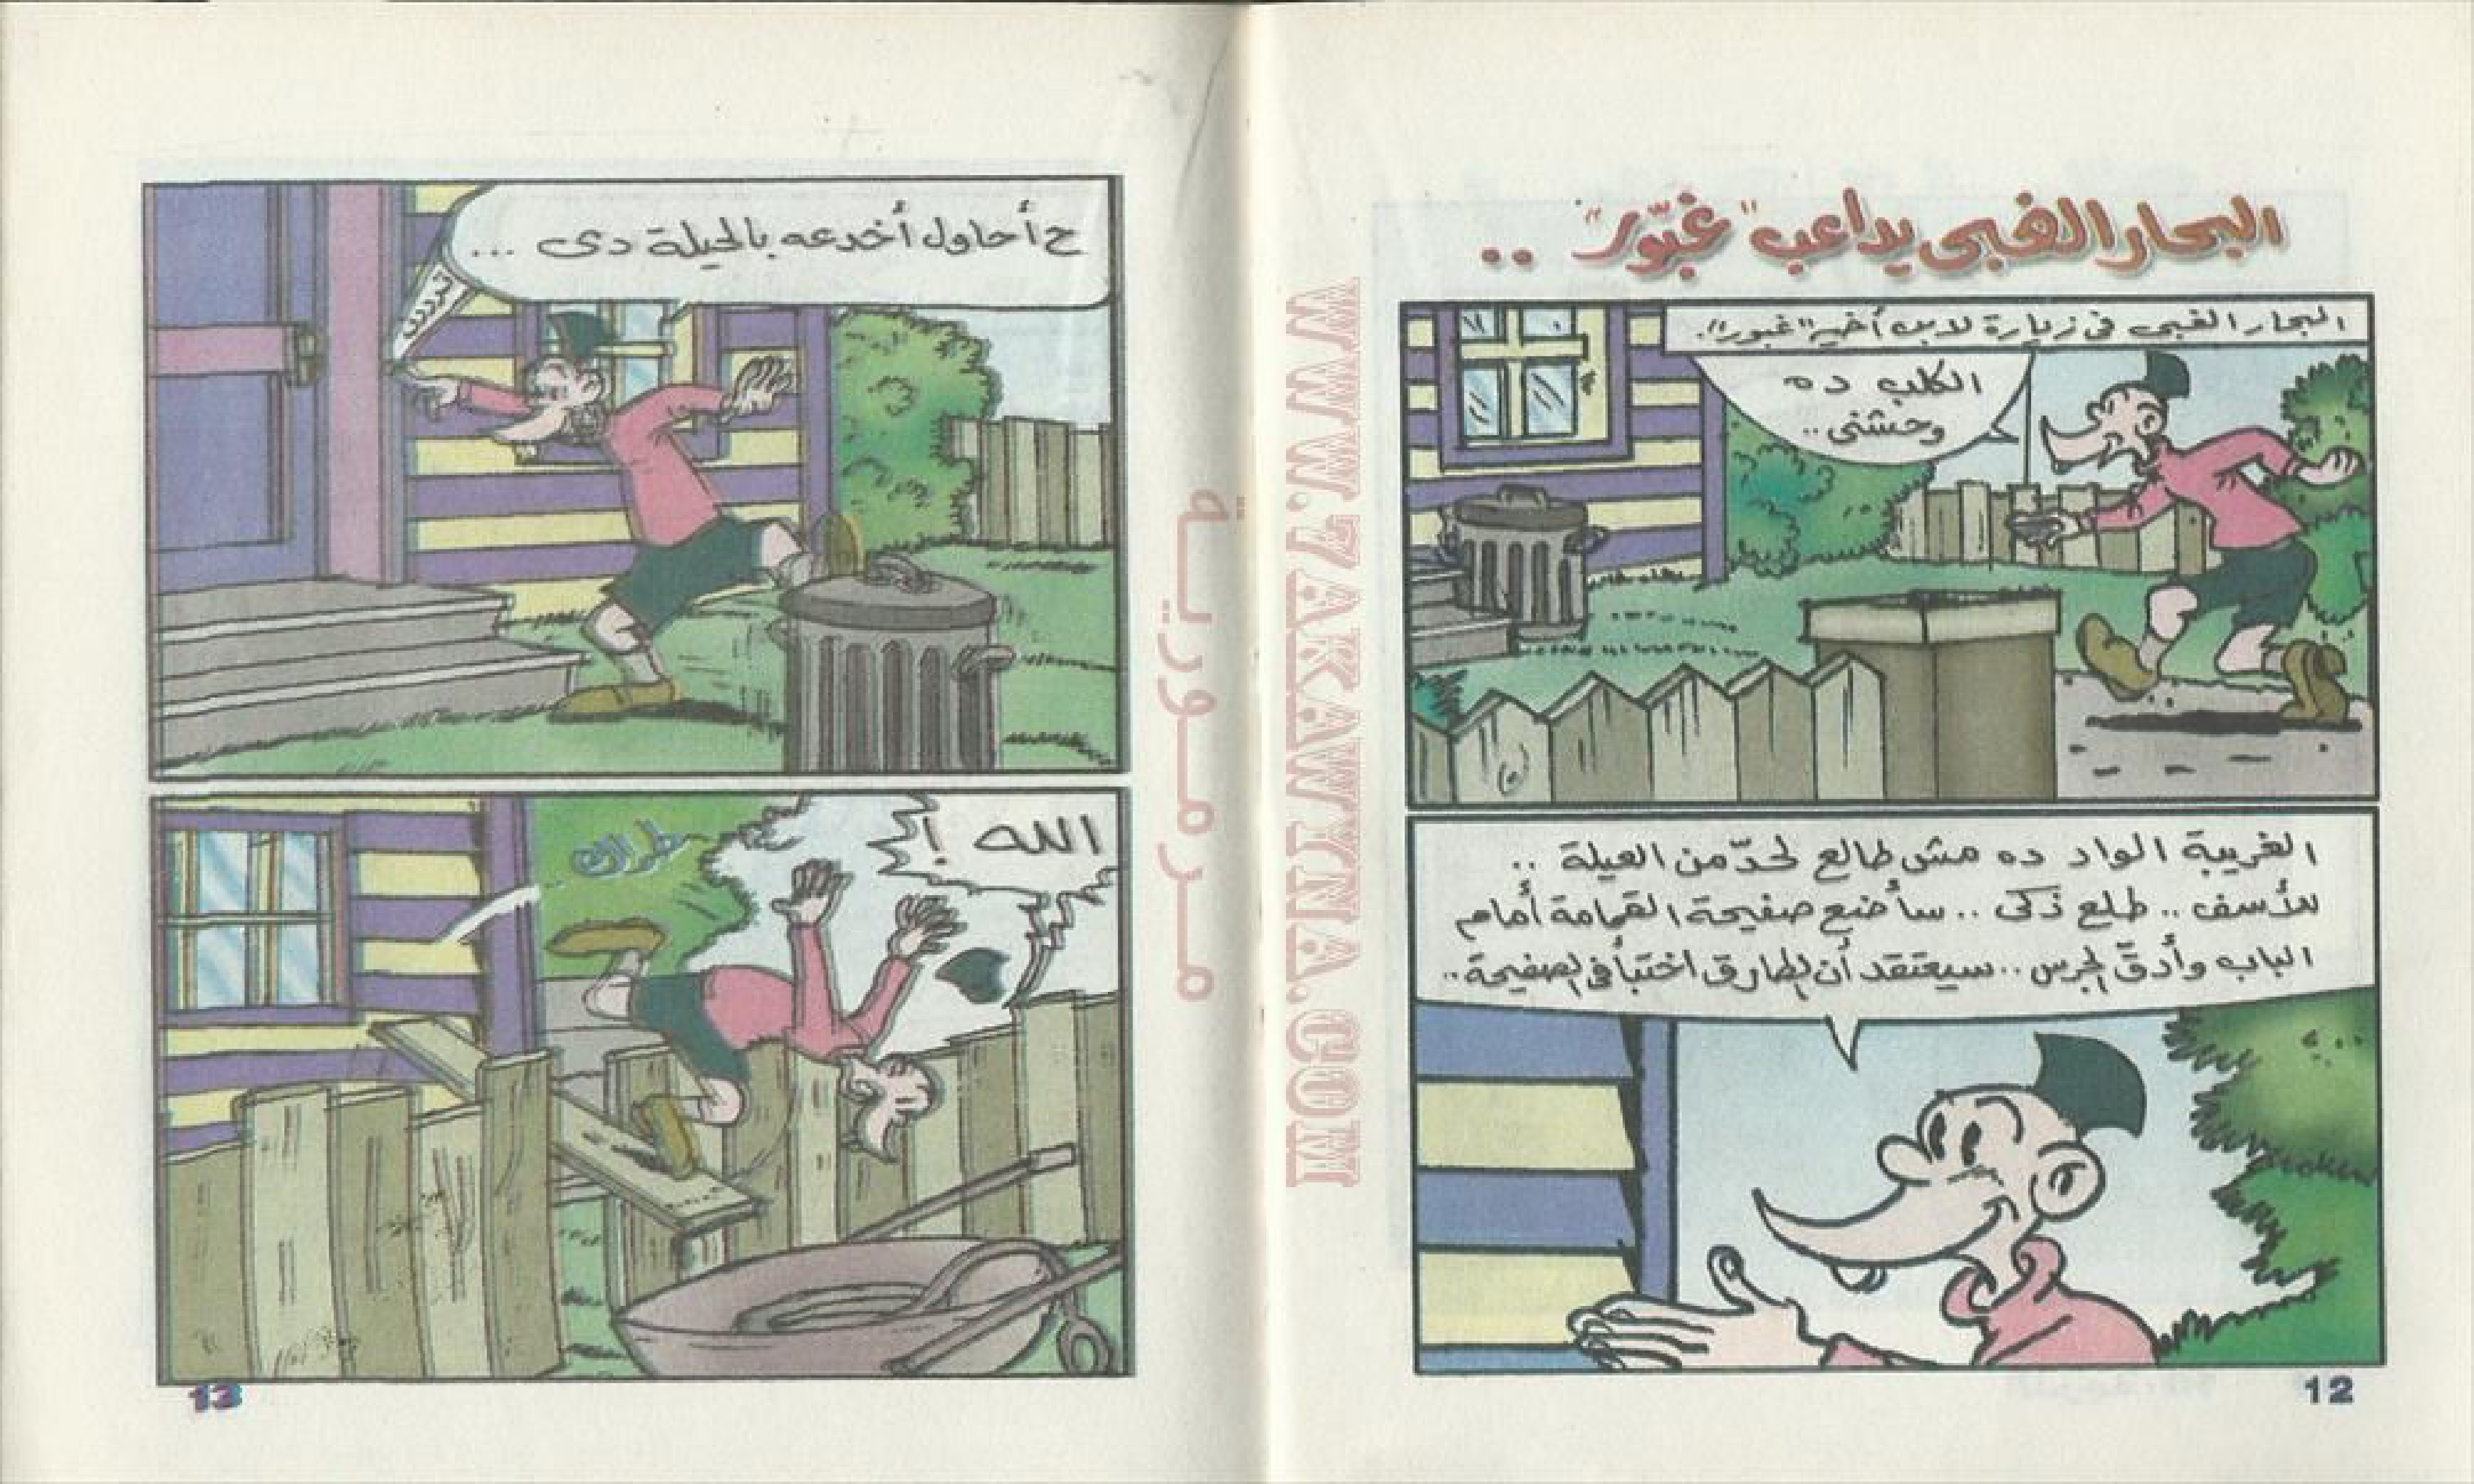 البحار الغبى يداعب "غبّور" ..
البحار الغبى فى زيارة لابن أخيه "غبور".
الكلب ده
وحشنى ..
الغريبة الواد ده مش طالع لحدّ من العيلة ..
للأسف .. طلع ذكى .. سأضع صفيحة القمامة أمام
الباب وأدقّ الجرس .. سيعتقد أن الطارق اختبأ فى الصفيحة ..
12
WWW.ZAKAWINNA.COM
مرمورية
ح أحاول أخدعه بالحيلة دى ...
ترررن
الله !
طراك ..
13